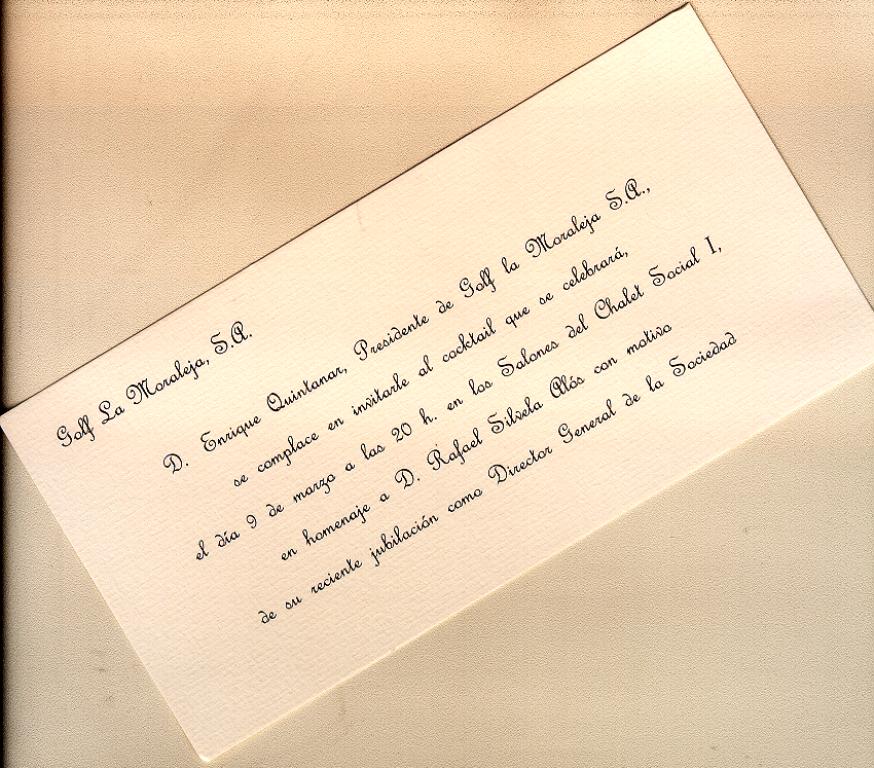 Golf La Moraleja, S.A.
D. Enrique Quintanar, Presidente de Golf la Moraleja S.A.,
se complace en invitarle al cocktail que se celebrará,
el día 9 de marzo a las 20 h. en los Salones del Chalet Social I,
en homenaje a D. Rafael Silvela Alós con motivo
de su reciente jubilación como Director General de la Sociedad